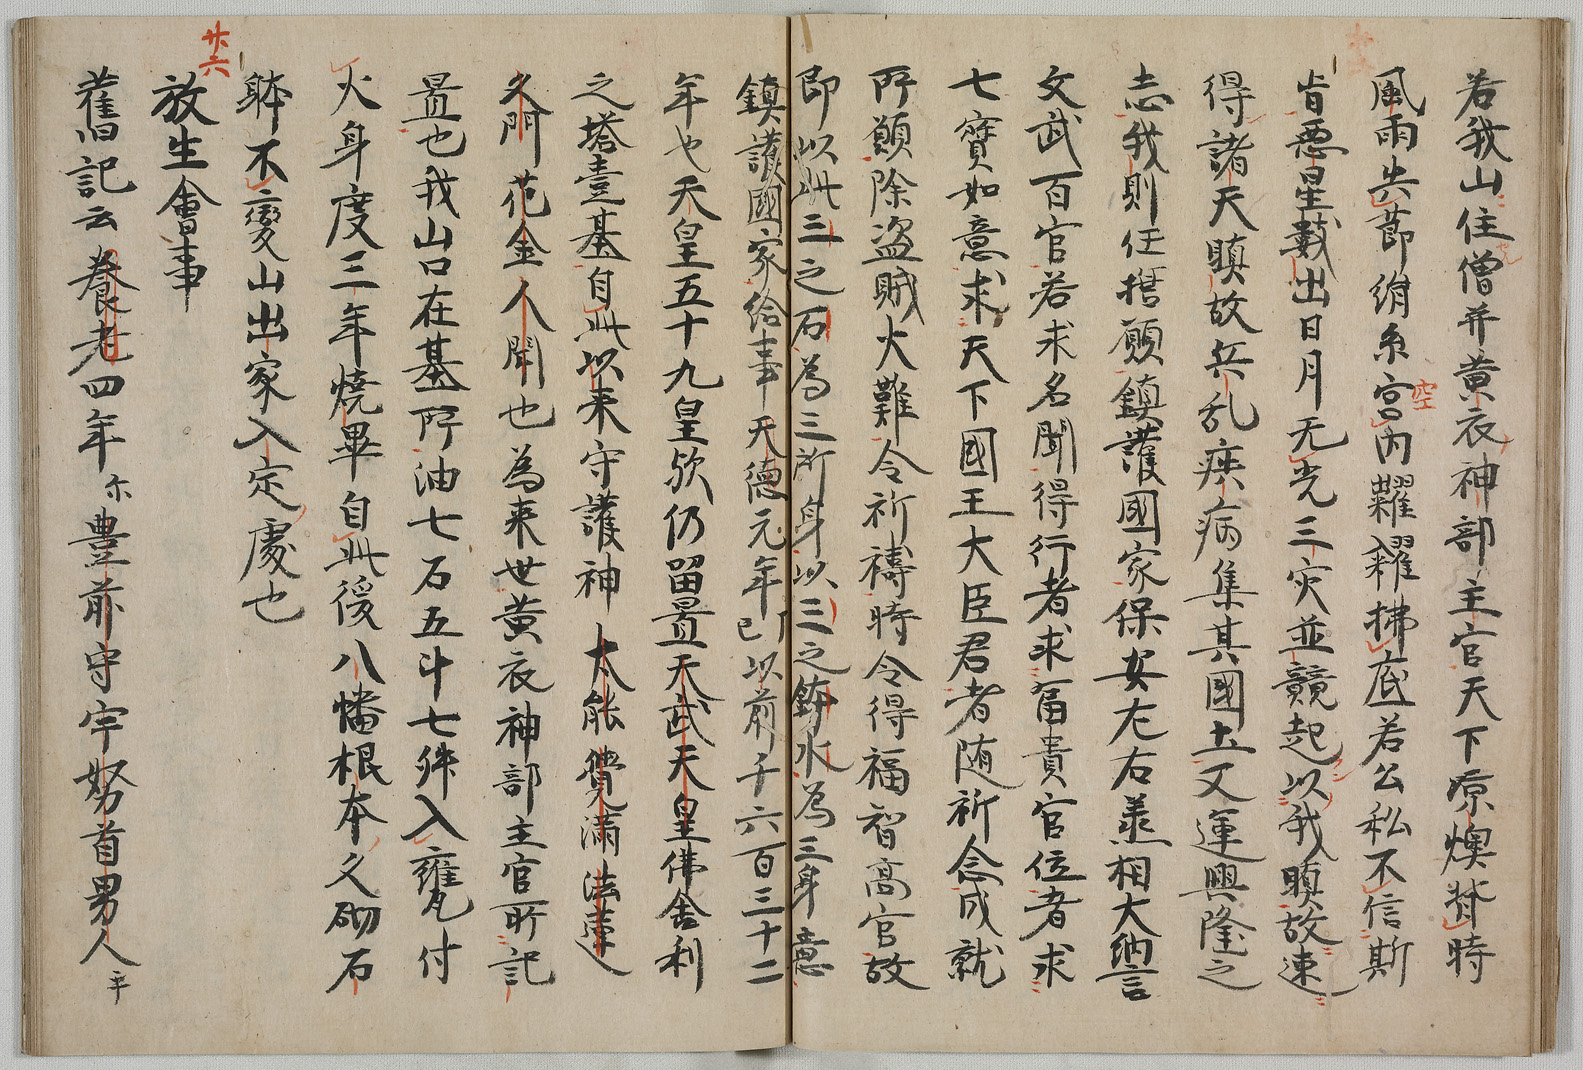 若我山住僧并黄衣神部主官天下凉燠時
風雨失莭絹糸宮内糶糴拂底若公私不信斯
空
旹悪星戴出日月无光三灾並競起以我瞋故速
得諸天瞋故兵乱疾病集其國土又運興隆之
志我則任擔願鎮護國家保安左右羕相大納言
文武百官若求名聞得行者求冨貴官位者求
七寳如意求天下國王大臣君者随祈念成就
所願除盗賊火難令祈禱時令得福智高官故
即以此三之石為三所身以三之鉢水為三身意
鎮護國家給事天德元年已以前千六百三十二
年也天皇五十九皇欤仍留置天武天皇佛舎利
之塔壹基自此以来守護神大能覺滿法蓮
久門花金人聞也為来世黄衣神部主官所記
置也我山口在基所油七石五斗七舛入甕付
火身度三年燒畢自此後八幡根本久砌石
躰不變山出家入定處也
廿六
放生會事
舊記云養老四年尓豊前守宇努首男人平